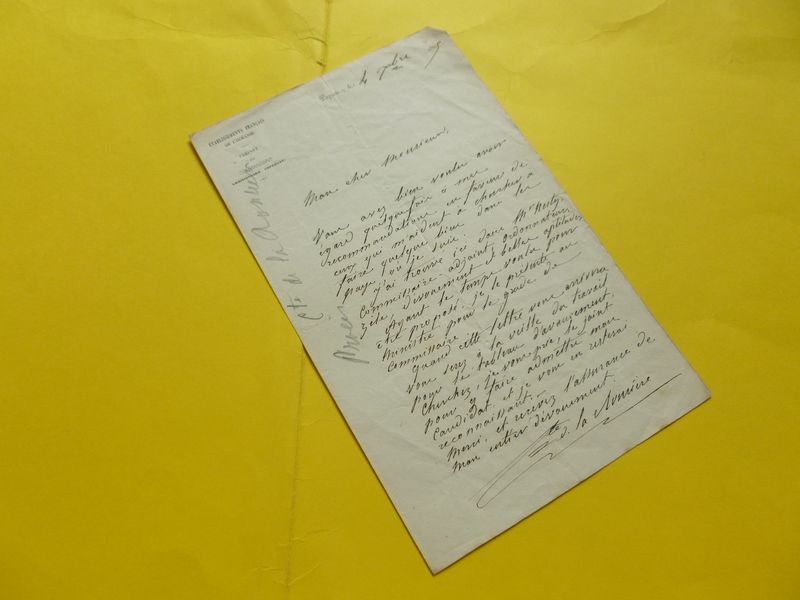 ÉTABLISSEMENTS FRANÇAIS
DE L'OCÉANIE
CABINET
Cte de la Roncière
Mon cher Monsieur,
Vous avez bien voulu avoir
égard quelquefois à mes
recommandations en faveur de
ceux qui m'aident à chercher à
faire quelque bien dans les
pays où je suis.
J'ai trouvé ici dans Mr
Commissaire-adjoint, ordonnateur,
zèle, dévouement et belles aptitudes
Ayant le temps voulu pour
être proposé, je le présente au
Ministre pour le grade de
Commissaire
Quand cette lettre vous arrivera
vous serez à la veille du travail
pour le tableau d'avancement.
Cherchez, je vous prie, le joint
pour y faire admettre mon
Candidat, et je vous en resterai
reconnaissant.
Merci, et recevez l'assurance de
mon entier dévouement.
Cte de la Roncière